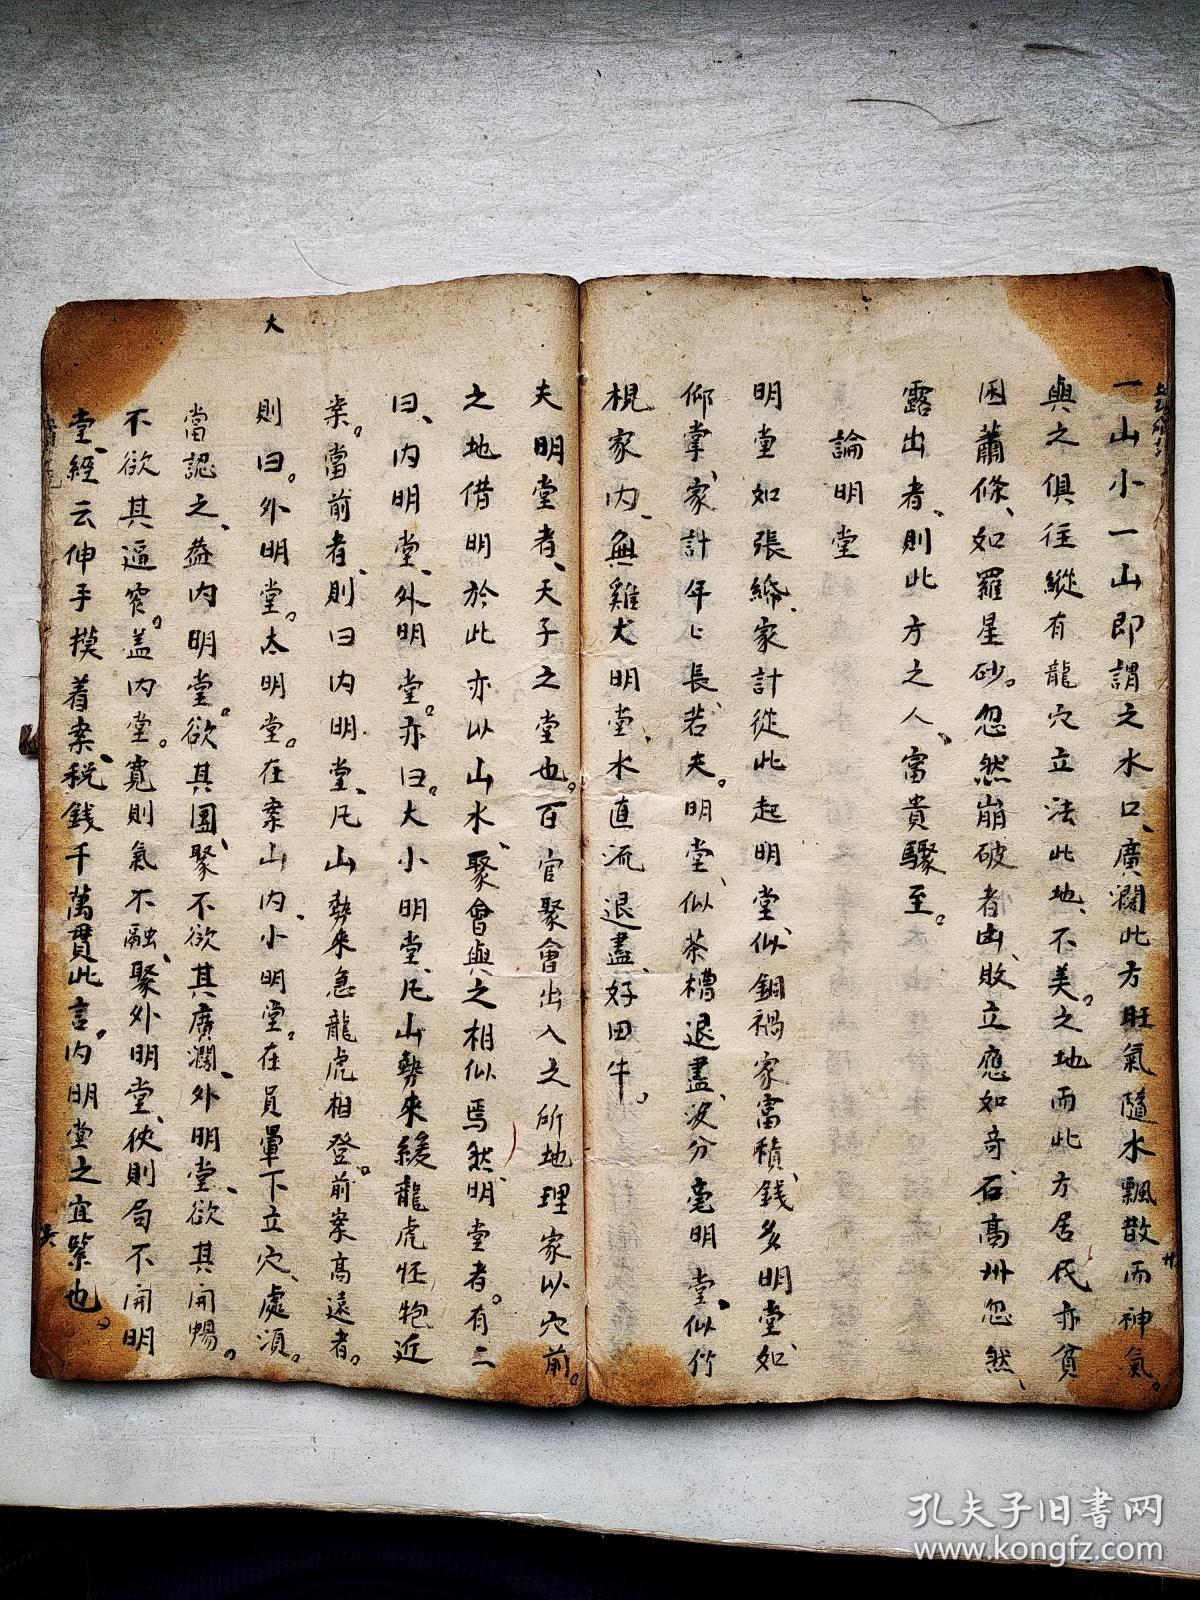 一山小一山即謂之水口、廣濶此方旺氣隨水飄散而神氣。
與之俱往縱有龍穴立法此地、不美。之地而此方居民亦貧
困蕭條、如羅星砂。忽然崩破者凶、敗立應如奇、石高卅忽然、
露出者、則此方之人、富貴驟至。
論明堂
明堂如張綿、家計從此起明堂、似銅禍家富積、錢多明堂如、
仰掌、家計年〻長、若夫。明堂、似茶槽退盡、没分毫明堂、似竹
梘家內、無雞犬明堂、水直流退盡、好田牛。
夫明堂者、天子之堂也。百官聚會出入之所地理家以穴前。
之地借明於此亦以山水、聚會與之相似焉然、明堂者。有二
曰、內明堂、外明堂。亦曰。大小明堂、凡山勢來緩龍虎恠抱近
案。當前者、則曰內明堂、凡山勢來急龍虎相登。前案高遠者。
則曰。外明堂。大明堂。在案山內、小明堂。在員暈下立穴、處須。
當認之、蓋內明堂。欲其團、聚不欲其廣濶、外明堂、欲其開暢。
不欲其逼窄。盖內堂。寬則氣不融、聚外明堂、狹則局不開明
堂、經云伸手摸着案、税錢千萬貫此言。內明堂之宜緊也。
大
孔夫子旧书网
www.kongfz.com